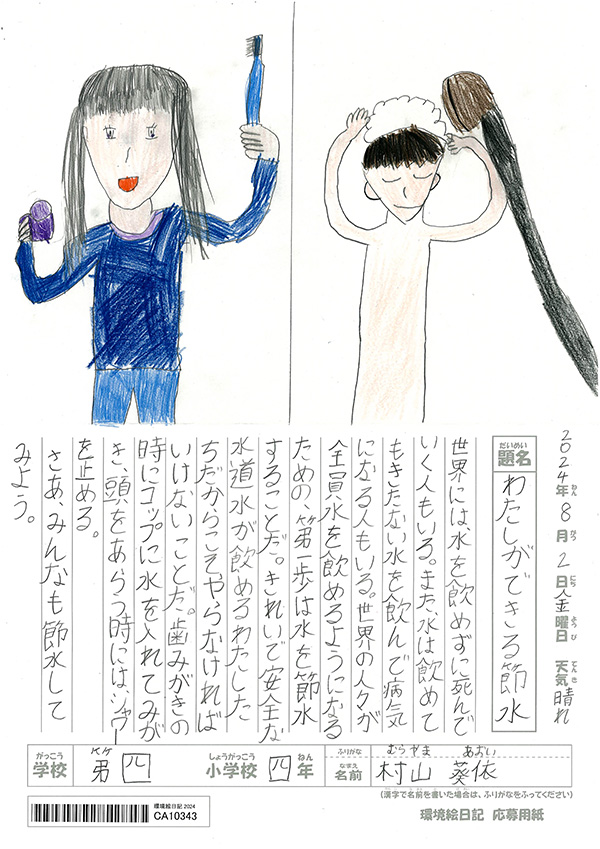 2024年8月2日金曜日 天気晴れ
ねん がつ にち ようび てんき
だいめい
題名
わたしができる節水
世界には、水を飲めずに死んで
いく人もいる。また、水は飲めて
もきたない水を飲んで病気
になる人もいる。世界の人々が
全員水を飲めるようになる
ための、第一歩は水を節水
することだ。きれいで安全な
水道水が飲めるわたした
ちだからこそやらなければ
いけないことだ。歯みがきの
時にコップに水を入れてみが
き、頭をあらう時には、シャワー
を止める。
さあ、みんなも節水して
みよう。
がっこう しょうがっこう ねん
学校 第四小学校 四年
ふりがな むらやま あおい
なまえ
名前 村山 葵依
(漢字で名前を書いた場合は、ふりがなをふってください)
環境絵日記 2024
CA10343
環境絵日記 応募用紙